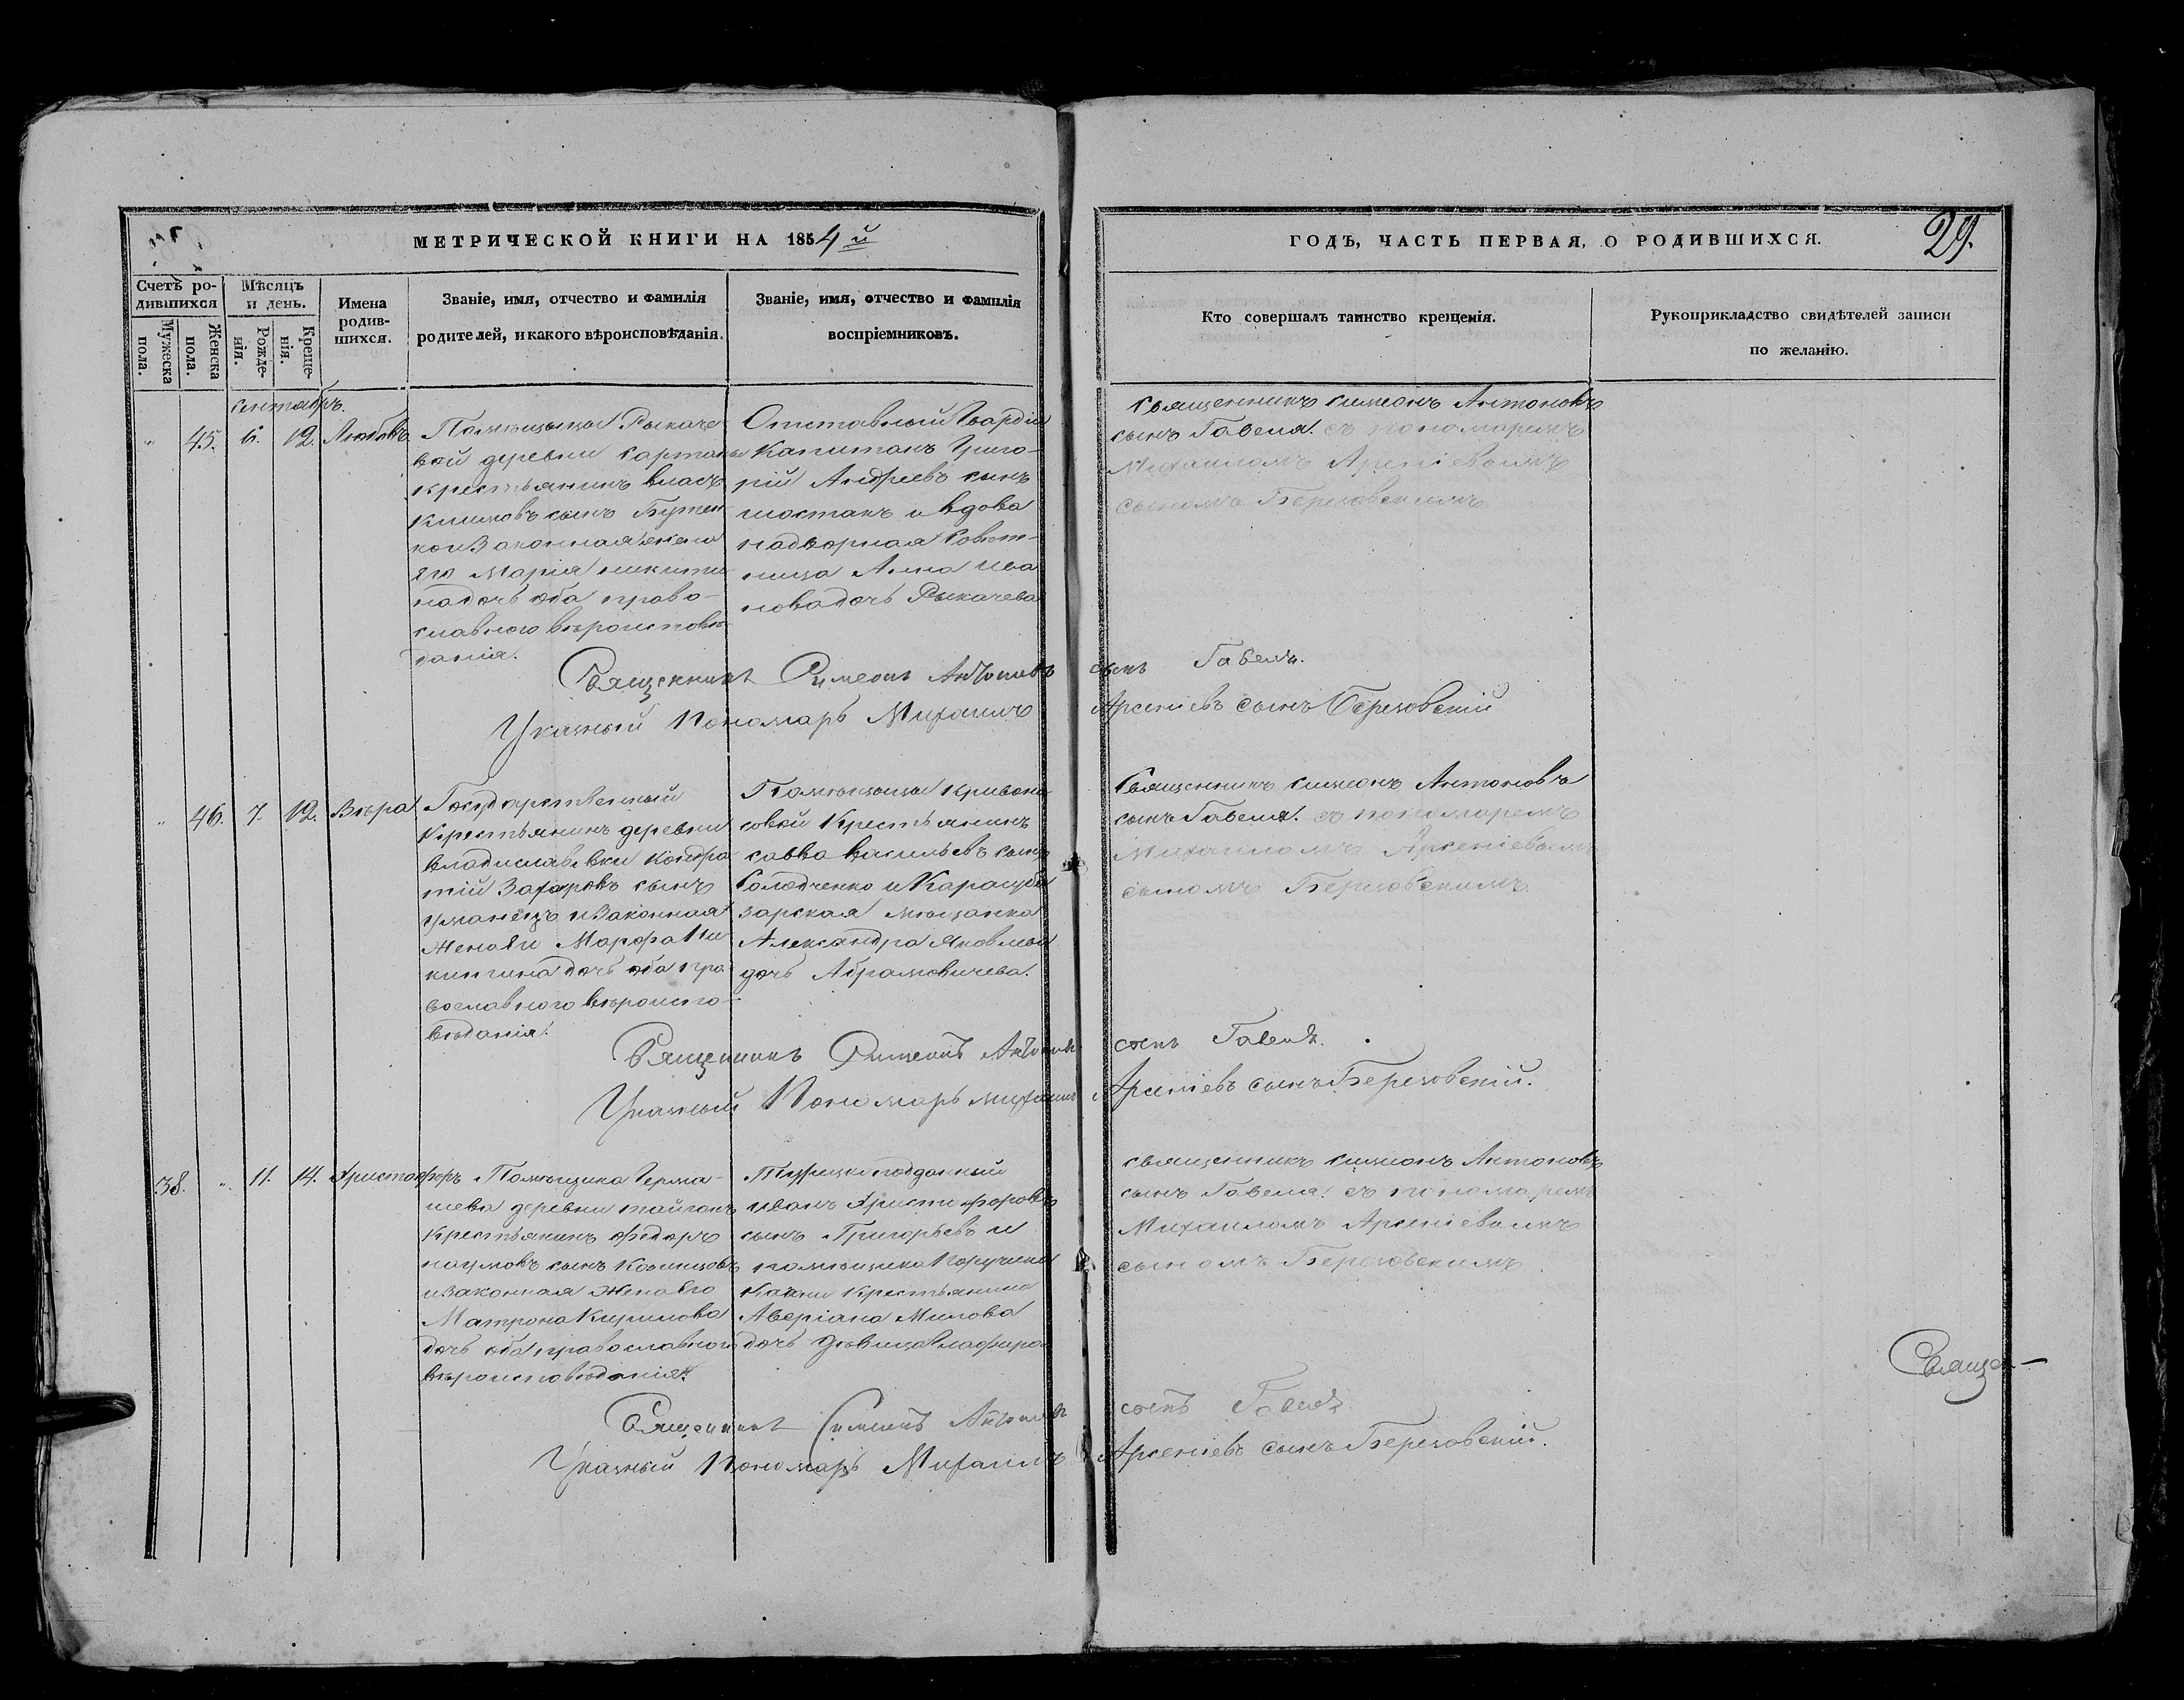 МЕТРИЧЕСКОЙ КНИГИ НА 1854 й
ГОДЪ, ЧАСТЬ ПЕРВАЯ, О РОДИВШИХСЯ.
29.
Счетъ ро-
дившихся
Мужеска пола.
Женска пола.
Мѣсяцъ
и день.
Рожде-
нія.
Креще-
нія.
Имена
родив-
шихся.
Званіе, имя, отчество и фамилія
родителей, и какого вѣроисповѣданія.
Званіе, имя, отчество и фамилія
воспріемниковъ.
Кто совершалъ таинство крещенія.
Рукоприкладство свидѣтелей записи
по желанію.
сентябрь.
" 45. 6. 12. Любовь
Помѣщицы Рыкаче-
вой деревни
крестьянинъ власъ
Климовъ сынъ Бутен
ко и Законная жена
его Марія никити
на дочь оба право-
славного вѣроисповѣ
данія.
Отставный Гвардіи
Капитанъ Григо-
рій Андреевъ сынъ
шостакъ и вдова
надворная Совѣт-
ница Анна Ива
нова дочь Рыкачева
священникъ симеонъ Антоновъ
сынъ Габеля. съ пономаремъ
Михаиломъ Арсеніевымъ
сыномъ Березовскимъ
Священникъ Симеонъ Антоновъ сынъ Габель.
Указный Пономарь Михаилъ Арсеніевъ сынъ Березовскій
" 46. 7. 12. Вѣра
Государственный
Крестьянинъ деревни
владиславовки Кондра
тій Захаровъ сынъ
Уманецъ и Законная
Жена его Марфа Ни
китина дочь оба пра
вославного вѣроиспо-
вѣданія.
Помѣщицы Кривоно
совой Крестьянинъ
савва васильевъ сынъ
Солодченко и Карасуба
зарская мѣщанка
Александра Яковлева
дочь Абрамовичева.
Священникъ симеонъ Антоновъ
сынъ Габеля. съ пономаремъ
Михаиломъ Арсеніевымъ
сыномъ Березовскимъ.
Священникъ Симеонъ Антоновъ сынъ Габель.
Указный Пономарь михаилъ Арсеніевъ сынъ Березовскій.
38. " 11. 14. Христофоръ
Помѣщика
деревни тайганъ
Крестьянинъ Федоръ
наумовъ сынъ
и Законная Жена его
Матрона Кирилова
дочь оба православного
вѣроисповѣданія.
Турецкоподданный
иванъ Христофоровъ
сынъ Григорьевъ и
помѣщика Поручика
Качони Крестьянина
Аверіана Милова
дочь дѣвица Глафира
священникъ симеонъ Антоновъ
сынъ Габеля. съ пономаремъ
Михаиломъ Арсеніевымъ
сыномъ Березовскимъ.
Священникъ Симеонъ Антоновъ сынъ Габель
Указный Пономарь Михаилъ Арсеніевъ сынъ Березовскій.
Свяще-